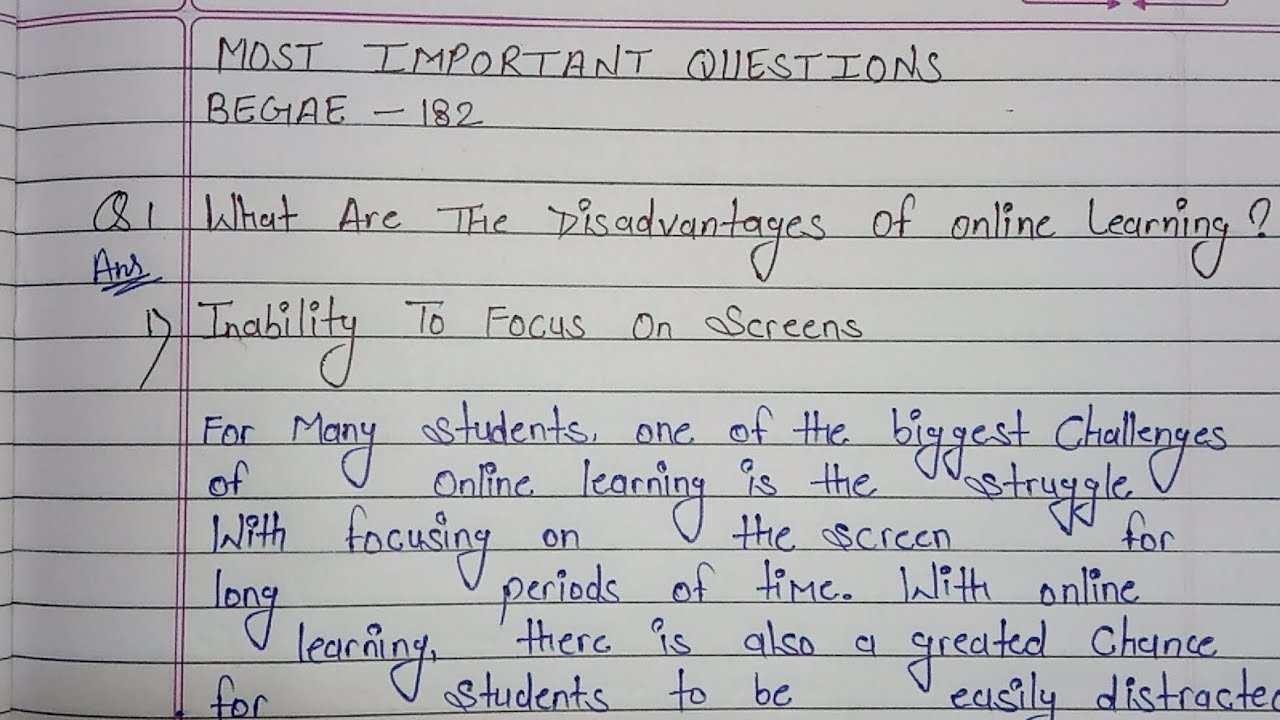 MOST IMPORTANT QUESTIONS
BEGAE - 182
Q1 What Are The Disadvantages Of online learning?
Ans
1) Inability To Focus On Screens
For Many students, one of the biggest Challenges
of online learning is the struggle
With focusing on the screen for
long periods of time. With online
learning, there is also a greated Chance
for students to be easily distracted